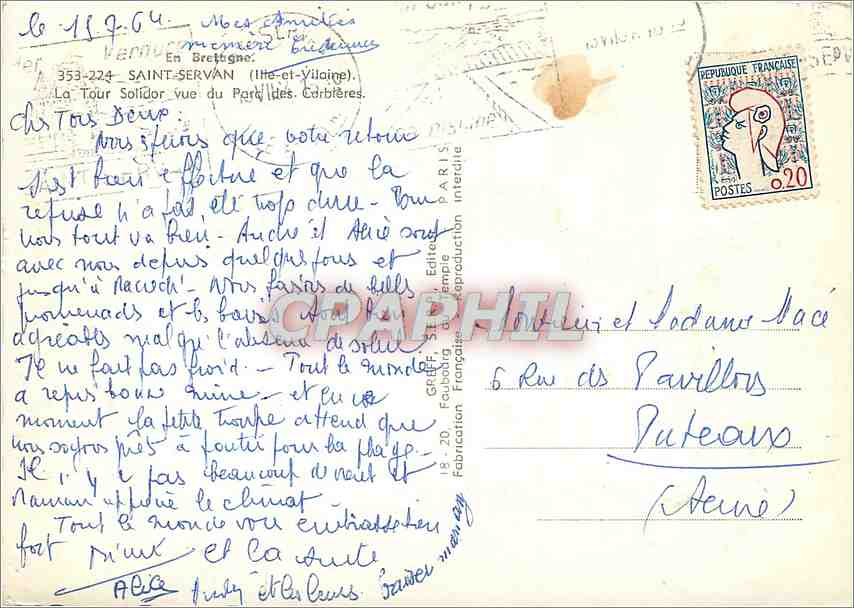 le 15.7.64. Mes Amitiés
En Bretagne.
353-224 SAINT-SERVAN (Ille-et-Vilaine).
La Tour Solidor vue du Parc des Corbières.
Chers Tous Deux.
Nous espérons que votre retour
s'est bien effectué et que la
n'a pas été trop dure. Pour
nous tout va bien. André et Alice sont
avec nous depuis quelques jours et
jusqu'à Mercredi. Nous faisons de belles
promenades et les bains sont bien
agréables malgré l'absence de soleil.
Il ne fait pas froid. Tout le monde
a repris bonne mine. et en ce
moment la petite troupe attend que
nous soyons prêts à partir pour la plage.
Il n'y a pas beaucoup de vent et
Maman apprécie le climat
Tout le monde vous embrasse bien
fort et la suite
Alice et les leurs.
GREFF, Editeur
18-20, Faubourg du Temple PARIS
Fabrication Française - Reproduction Interdite
REPUBLIQUE FRANÇAISE
POSTES 0.20
CPAPHIL
Monsieur et Madame Macé
6 Rue des Pavillons
Puteaux
(Seine)